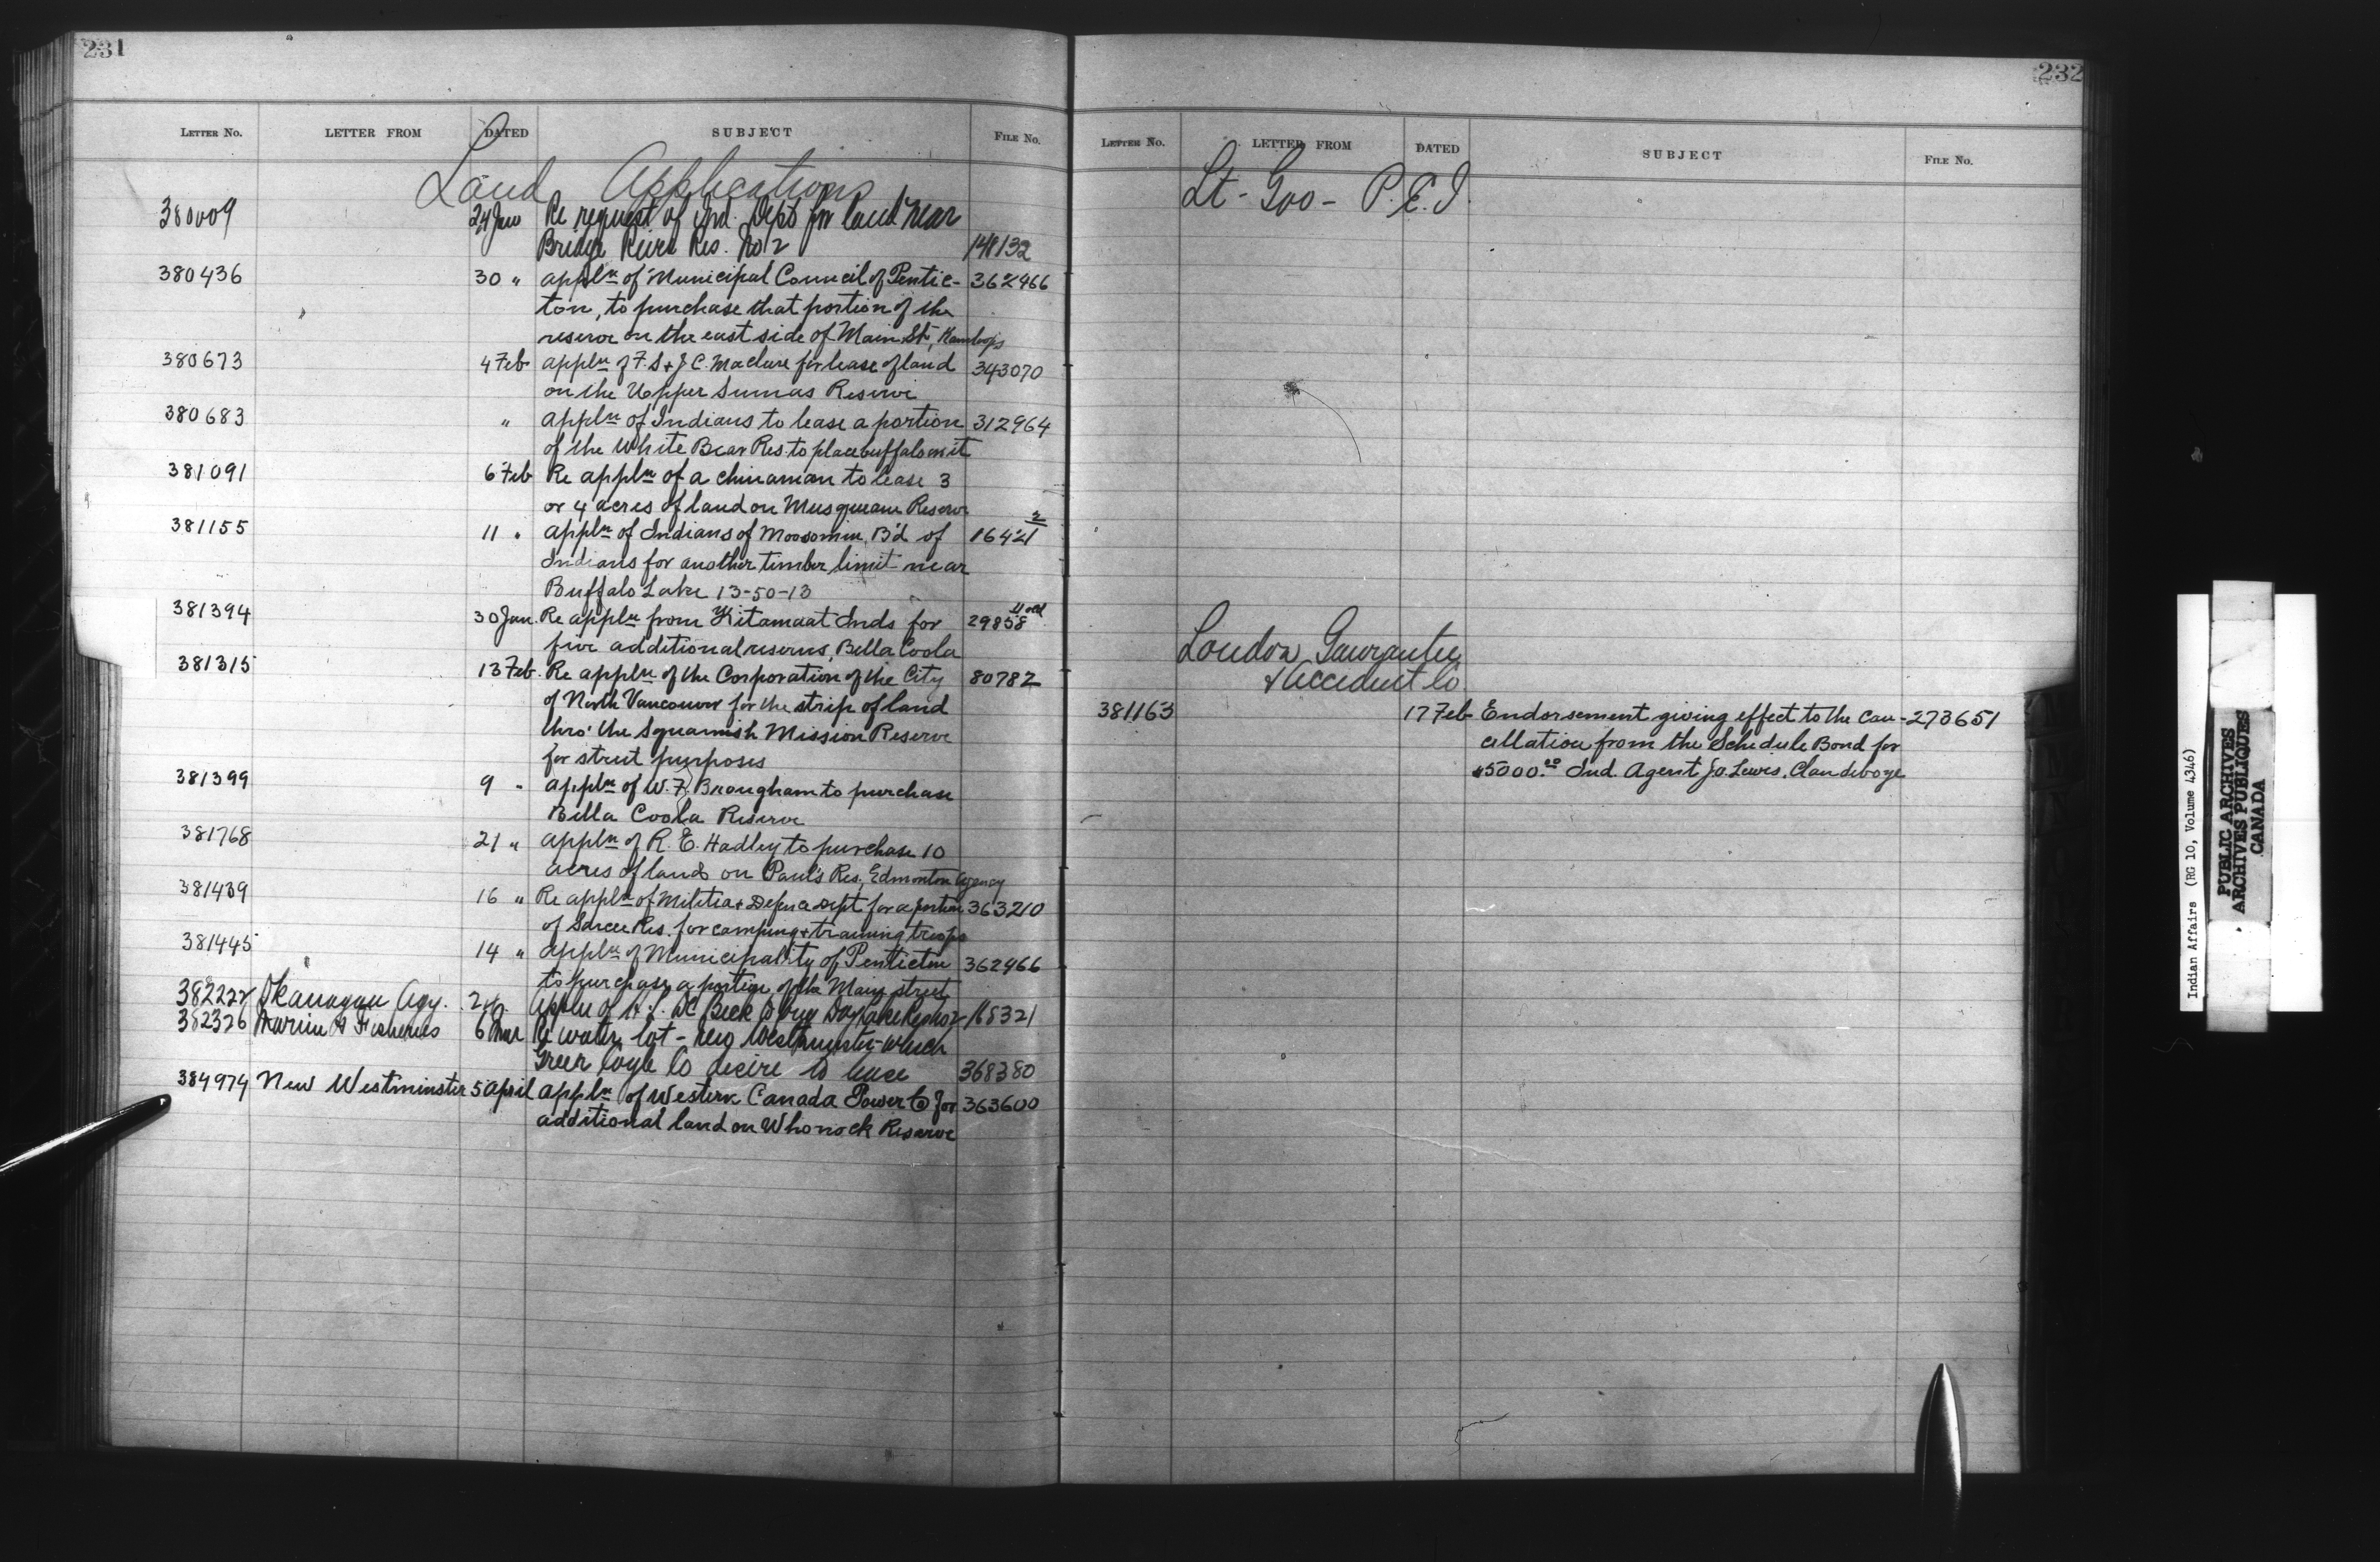 231
LETTER No. LETTER FROM DATED SUBJECT FILE No.
Land Applications
380009 24 Jan Re request of Ind. Dept for land near
Bridge River Res. No 2 148132
380436 30 " appln of Municipal Council of Pentic- 362966
ton, to purchase that portion of the
reserve on the east side of Main St, Kamloops
380673 4 Feb appln of F. S & J C. Maclure for lease of land 343070
on the Upper Sumas Reserve
380683 " appln of Indians to lease a portion 312964
of the White Bear Res. to place buffalo on it
381091 6 Feb Re appln of a chinaman to lease 3
or 4 acres of land on Musqueam Reserve
381155 11 " appln of Indians of Moosomin B'd of 16421 2
Indians for another timber limit near
Buffalo Lake 13-50-13
381394 30 Jan. Re appln from Kitamaat Inds for 29858
five additional reserves, Bella Coola
381315 13 Feb. Re appln of the Corporation of the City 80782
of North Vancouver for the strip of land
thro' the Squamish Mission Reserve
for street purposes
381399 9 " appln of W. F. Brougham to purchase
Bella Coola Reserve
381768 21 " appln of R. E. Hadley to purchase 10
acres of land on Paul's Res., Edmonton Agency
381439 16 " Re appln of Militia & Defence Dept for a portion 363210
of Sarcee Res. for camping & training troops
381445 14 " appln of Municipality of Penticton 362966
to purchase a portion of the Main street
382222 Okanagan Agy. appln of 168321
382326 Marine & Fisheries 6 Mar Re water lot - New Westminster which
Greer Coyle Co desire to lease 368380
384974 New Westminster 5 april appln of Western Canada Power Co for 363600
additional land on Whonock Reserve
232
LETTER No. LETTER FROM DATED SUBJECT FILE No.
Lt - Gov - P. E. I.
London Guarantee
& Accident Co.
381163 17 Feb Endorsement giving effect to the can- 273651
cellation from the Schedule Bond for
$5000.00 Ind. Agent J. O. Lewis, Clandeboye
Indian Affairs (RG 10, Volume 4346)
PUBLIC ARCHIVES
ARCHIVES PUBLIQUES
CANADA